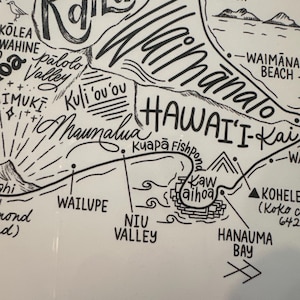 KŌLEA
WAHINE
Pālolo
Valley
Waimānalo
WAIMĀNA
BEACH
IMUKĪ
Kuliʻouʻou
HAWAIʻI-Kai
Maunalua
Kuapā Fishpond
Kaw
aihoa
WAILUPE
NIU
VALLEY
HANAUMA
BAY
KOHELE
(Koko
642